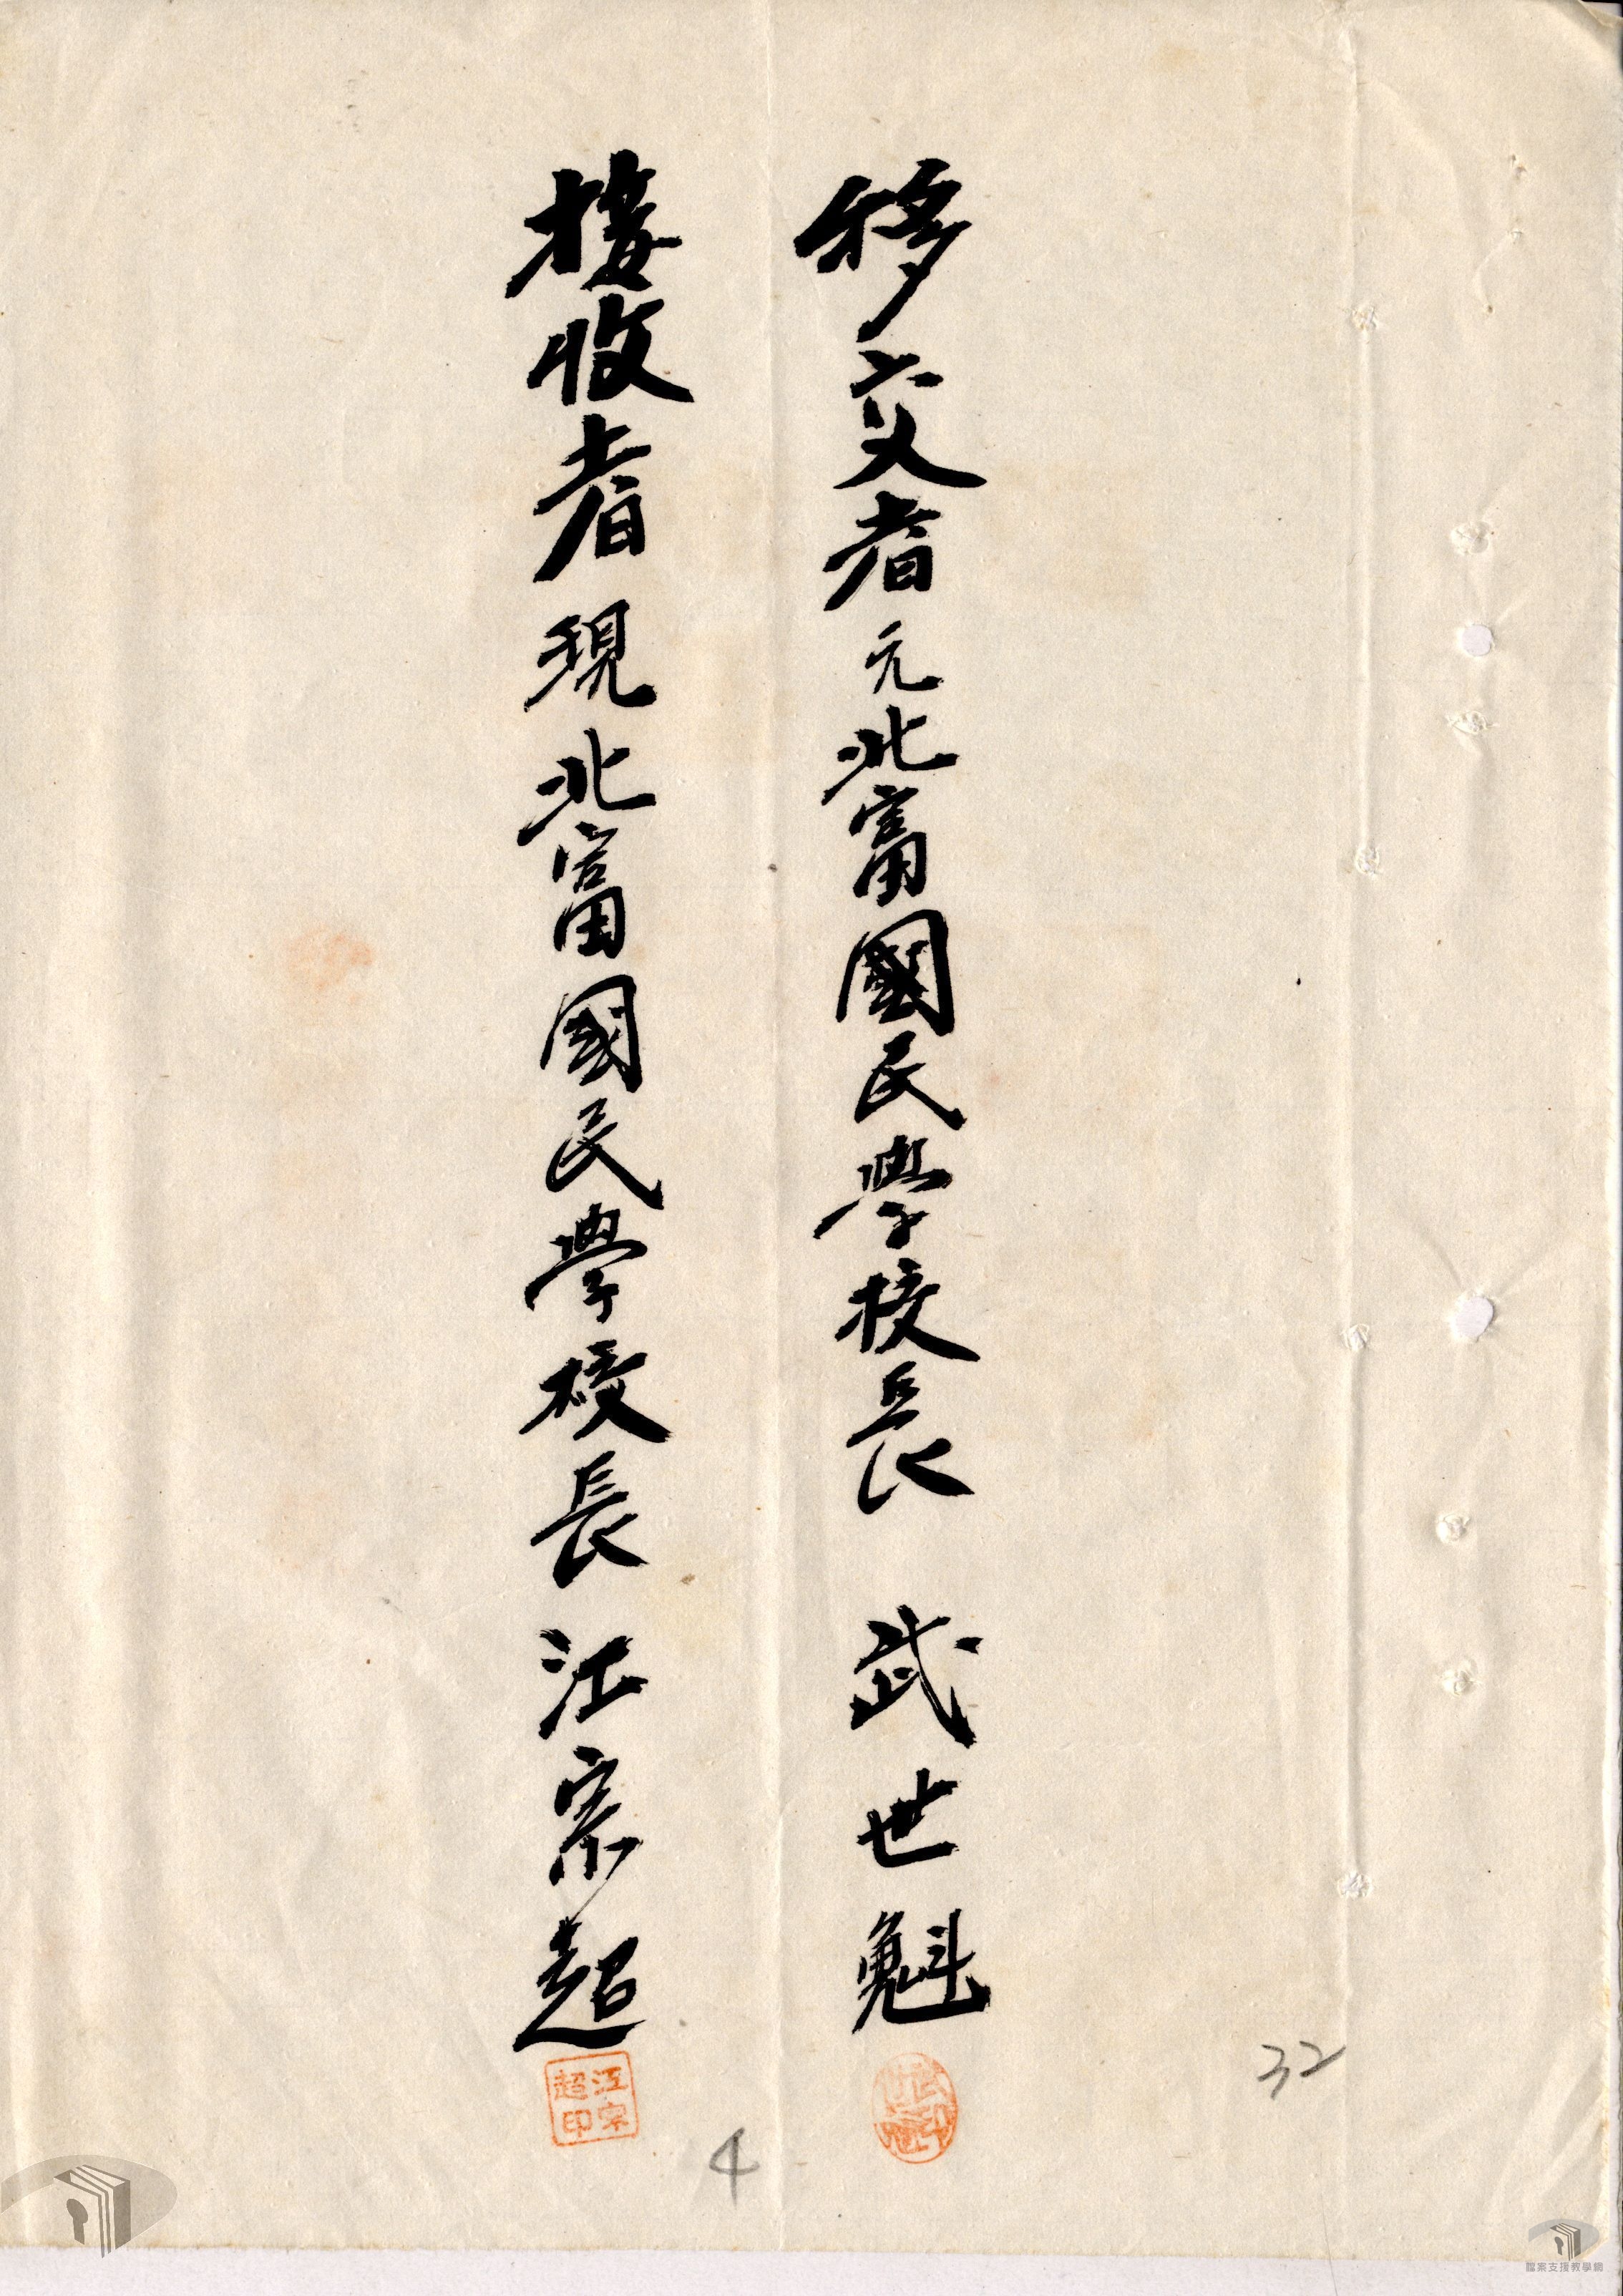 移交者 元北富國民學校長 武世魁
接收者 現北富國民學校長 江宗超
江宗超印
32
4
檔案支援教學網